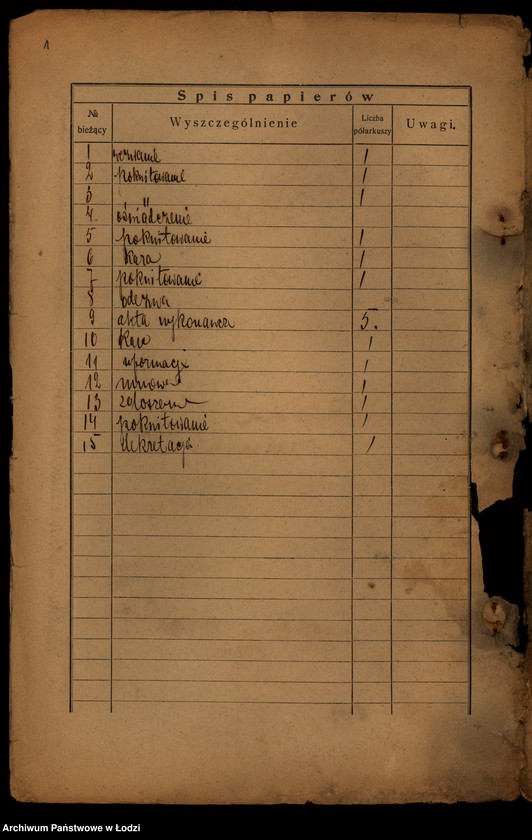 1
Spis papierów
№ bieżący Wyszczególnienie Liczba półarkuszy Uwagi.
1 wezwanie /
2 pokwitowanie /
3 " /
4. oświadczenie
5 pokwitowanie /
6 kara /
7 pokwitowanie /
8 odezwa
9 akta wykonawcze 5.
10 /
11 /
12 /
13 zgłoszenie /
14 pokwitowanie /
15 dekretacja /
Archiwum Państwowe w Łodzi